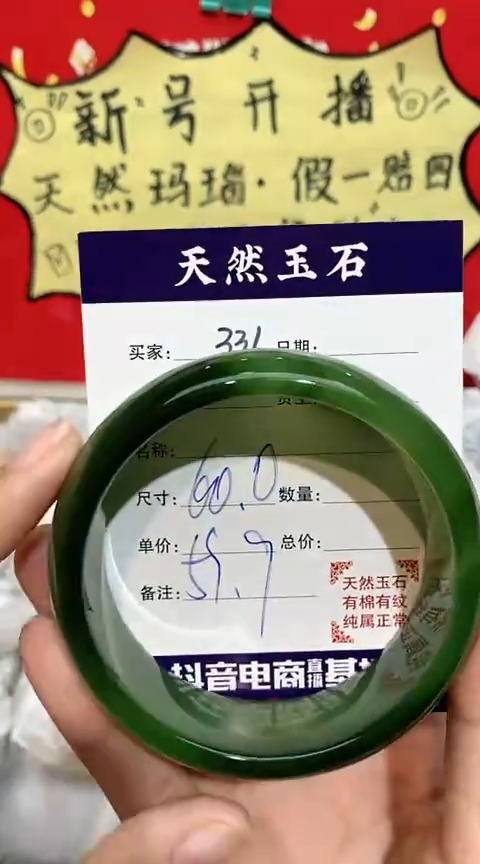 新号开播
天然玛瑙·假一赔四
天然玉石
买家: 331 日期:
名称:
尺寸: 60.0 数量:
单价: 总价:
备注: 59.9
天然玉石
有棉有纹
纯属正常
抖音电商直播基地